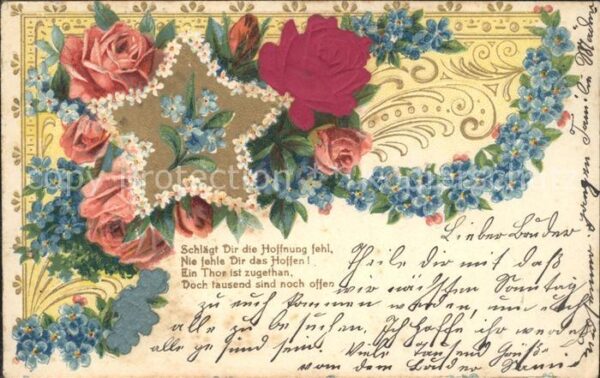 Schlägt Dir die Hoffnung fehl,
Nie fehle Dir das Hoffen!
Ein Thor ist zugethan,
Doch tausend sind noch offen.
Lieber Bruder
Theile dir mit daß
wir nächsten Sonntag
zu euch kommen werden, um euch
alle zu besuchen. Ich hoffe ihr werdet
alle gesund sein. Viele tausend Grüße
von dem Bruder
ganzen Familie